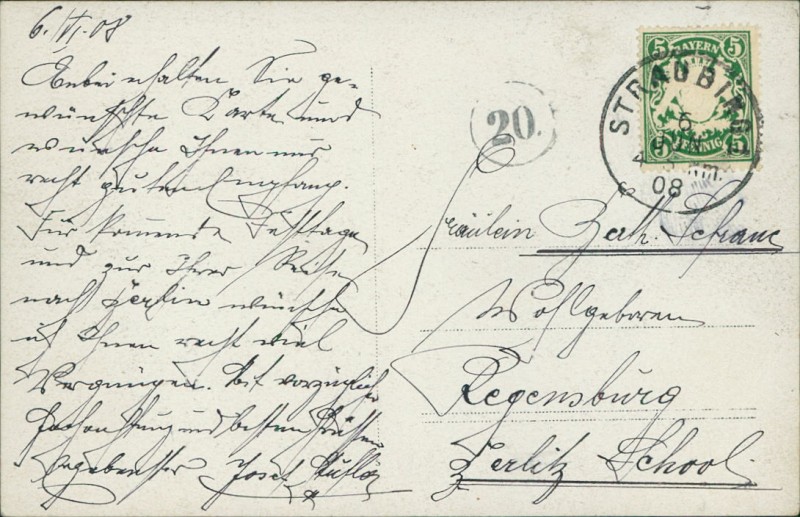 6./VI.08
Anbei erhalten Sie ge-
wünschte Karte und
wünsche Ihnen nur
recht guten Empfang.
Für kommende Festtage
und zur Ihrer Reise
nach Berlin wünsche
ich Ihnen recht viel
Vergnügen. Mit vorzüglicher
Hochachtung und besten Grüßen
Ergebenster Josef
20.
5 BAYERN 5
5 PFENNIG 5
STRAUBING
6
JUN
4 Nm.
08
Fräulein Bath. Schranc
Wohlgeboren
Regensburg
Berlitz School.